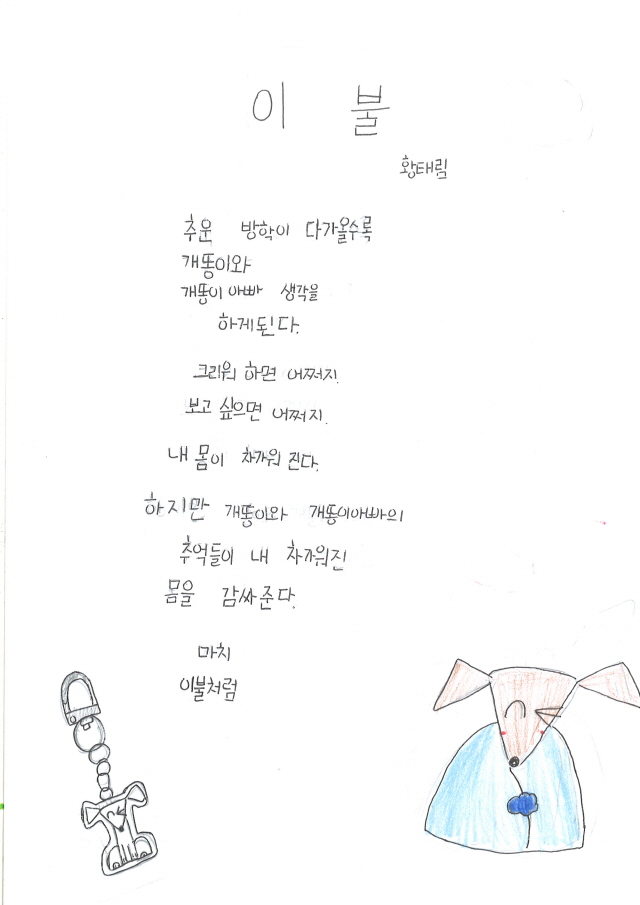 이 불
황태림
추운 방학이 다가올수록
개똥이와
개똥이 아빠 생각을
하게된다.
크리워 하면 어쩌지.
보고 싶으면 어쩌지.
내 몸이 차가워 진다.
하지만 개똥이와 개똥이아빠의
추억들이 내 차가워진
몸을 감싸준다.
마치
이불처럼